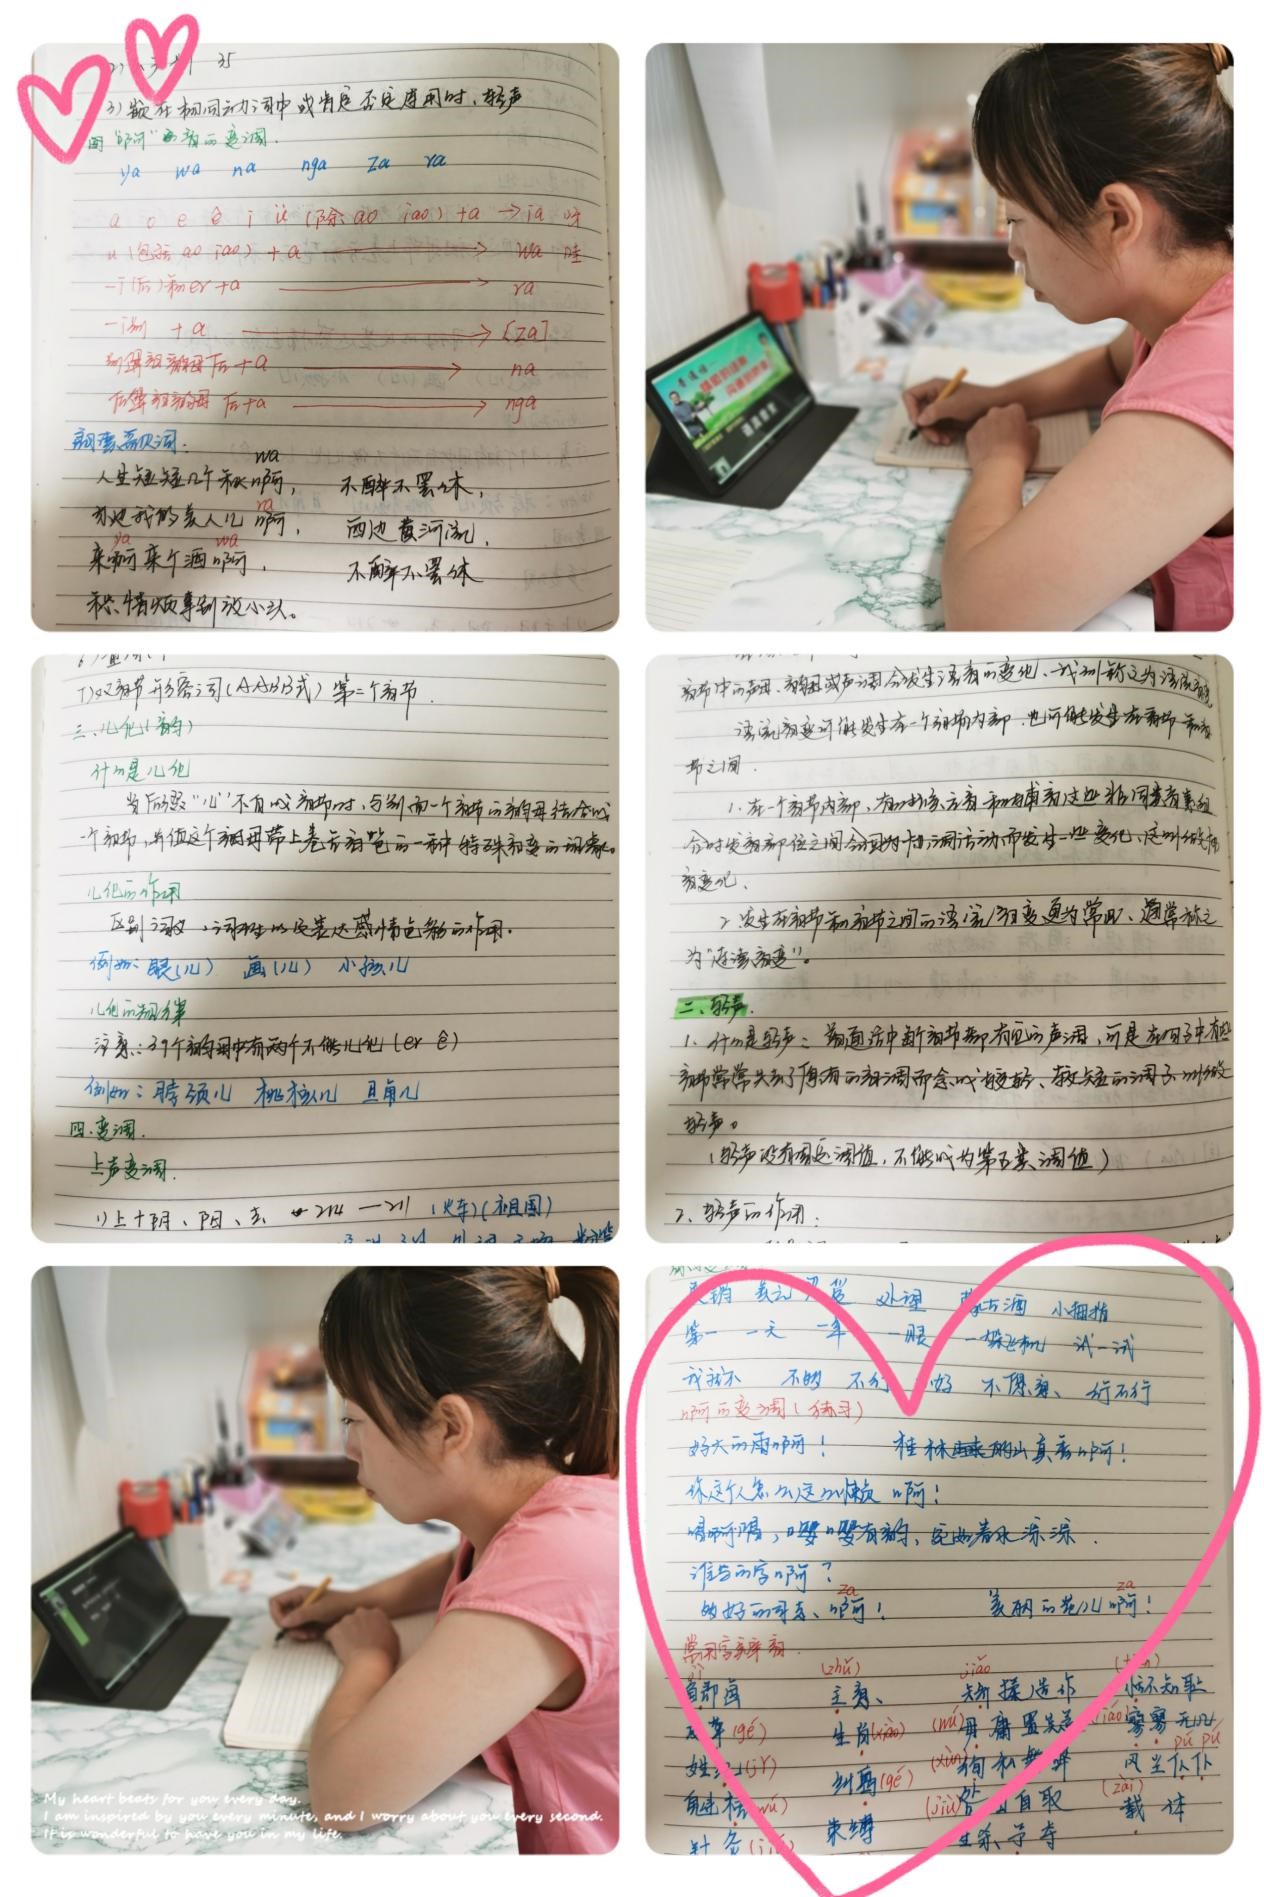 35
3)嵌在相同动词中或肯定否定连用时,轻声
四"啊"的变调.
ya wa na nga za ra
a o e ê i ü (除 ao iao) +a → ia 呀
u (包括 ao iao) + a → wa 哇
-i(后)和er +a → ra
-i前 + a → [za]
+a → na
+a → nga
wa
人生短短几个秋啊, 不醉不罢休,
ra
东边我的美人儿啊, 西边黄河流,
ya wa
来啊来个酒啊, 不醉不罢休
愁情烦事别放心头。
7)双音节形容词(AABB式)第二个音节.
三、儿化(韵)
什么是儿化
当后缀"儿"不自成音节时,与别而一个音节的韵母结合成
一个音节,并值这个韵母带上卷舌音色的一种特殊音变的现象。
儿化的作用
区别词义,词性以及表达感情色彩的作用.
例如:眼(儿) 画(儿) 小孩儿
儿化的
注意:39个韵母中有两个不能儿化(er ê)
例如:脖颈儿 桃核儿 豆角儿
四.变调.
上声变调.
1)上+阴、阳、去 214—211 (火车)(祖国)
音节中的声母、韵母或声调会发生语音的变化、我们称之为语流音变
语流音变可能发生在一个音节内部,也可能发生在音节和音
节之间.
1.在一个音节内部,有时候元音和辅音这些不同类音素组
合时发音部位之间会因为协调活动而发生一些变化,这叫做
音变化.
2.发生在音节和音节之间的语流音变更为常见、通常称之
为"连读音变"。
二、轻声.
1.什么是轻声:普通话中每个音节都有它的声调,可是在句子中有些
音节常常失去了原有的音调而念成较轻、较短的调子.叫做
轻声。
(轻声没有固定调值,不能成为第五类调值)
2、轻声的作用:
处理 蒙古酒 小拇指
第一 一天 一年 一眼 一架飞机 试一试
我就不 不够 不行 不好 不愿意、行不行
啊的变调(练习)
好大的雨啊! 桂林的山真秀啊!
你这个人怎么这么懒啊!
唱啊唱,嘤嘤有韵,宛如春水淙淙.
谁写的字啊?
za za
的好的同志、啊! 美丽的花儿啊!
常用字辨音.
(zhǔ) jiǎo
自郐 主意、 矫揉造作 恬不知耻
改革(gé) 生肖(xiào) (wú)毋庸置疑 寥寥无几
纠葛(gé) (xùn)徇私舞弊 pú pú 风尘仆仆
束缚 (jiù)咎由自取 (zài)载体
针灸(jiǔ) 生杀予夺
My heart beats for you every day.
I am inspired by you every minute, and I worry about you every second.
It is wonderful to have you in my life.